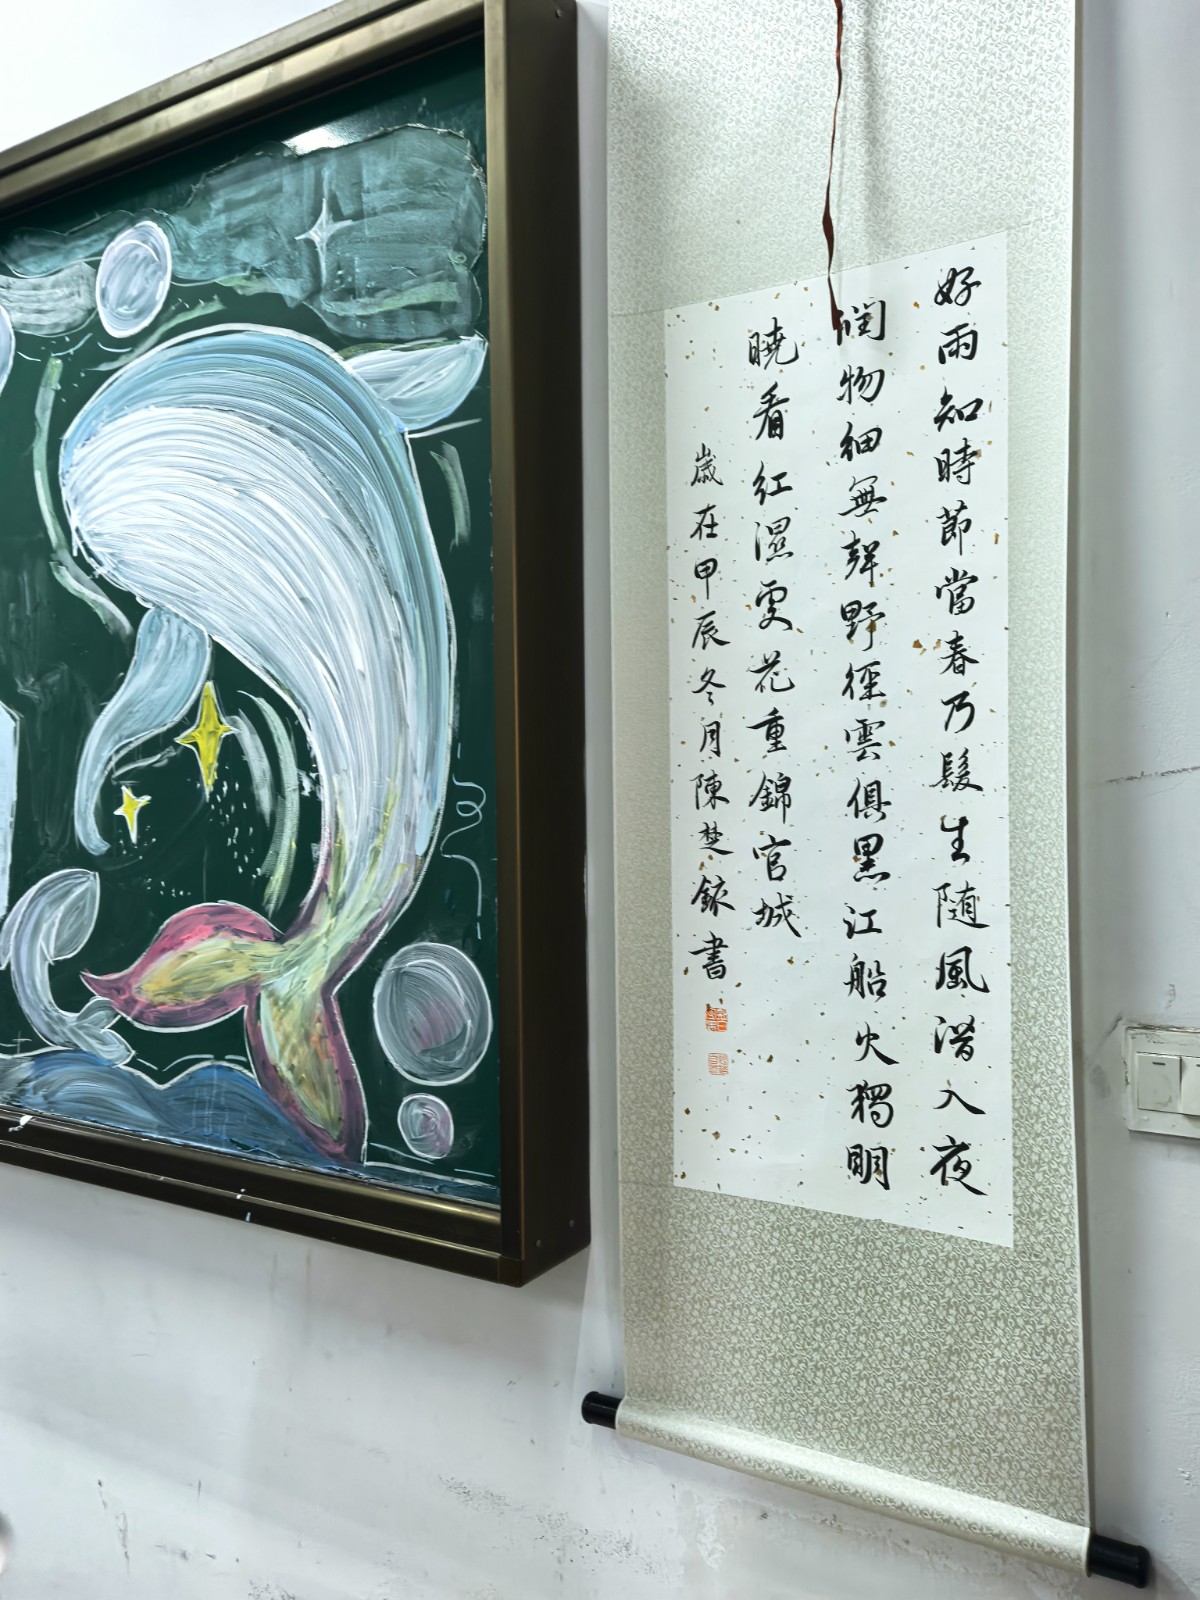 好雨知時節當春乃髮生随風潜入夜
潤物細無聲野徑雲俱黑江船火獨明
曉看紅濕更花重錦官城
歲在甲辰冬月陳楚銥書